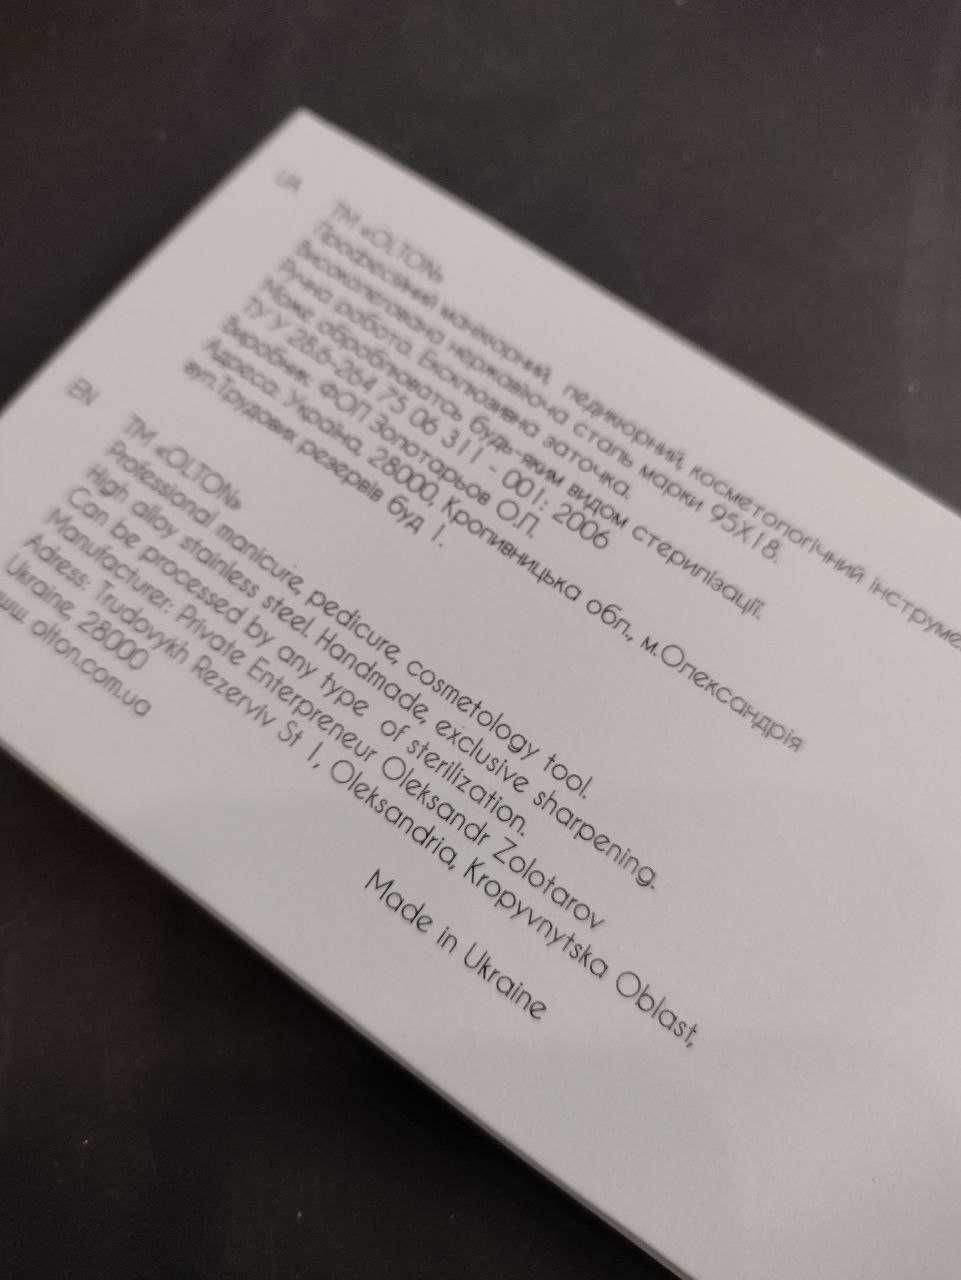 UA
ТМ «OLTON»
Професійний манікюрний, педикюрний, косметологічний
Високолегована нержавіюча сталь марки 95Х18.
Ручна робота. Ексклюзивна заточка.
Може оброблюватсь будь-яким видом стерилізації.
ТУ У 28.6-264 75 06 311 - 001: 2006
Виробник: ФОП Золотарьов О.П.
Адреса: Україна, 28000, Кропивницька обл., м.Олександрія
вул.Трудових резервів буд 1.
EN
TM «OLTON»
Professional manicure, pedicure, cosmetology tool.
High alloy stainless steel. Handmade, exclusive sharpening.
Can be processed by any type of sterilization.
Manufacturer: Private Enterpreneur Oleksandr Zolotarov
Adress: Trudovykh Rezerviv St 1, Oleksandria, Kropyvnytska Oblast,
Ukraine, 28000
olton.com.ua
Made in Ukraine